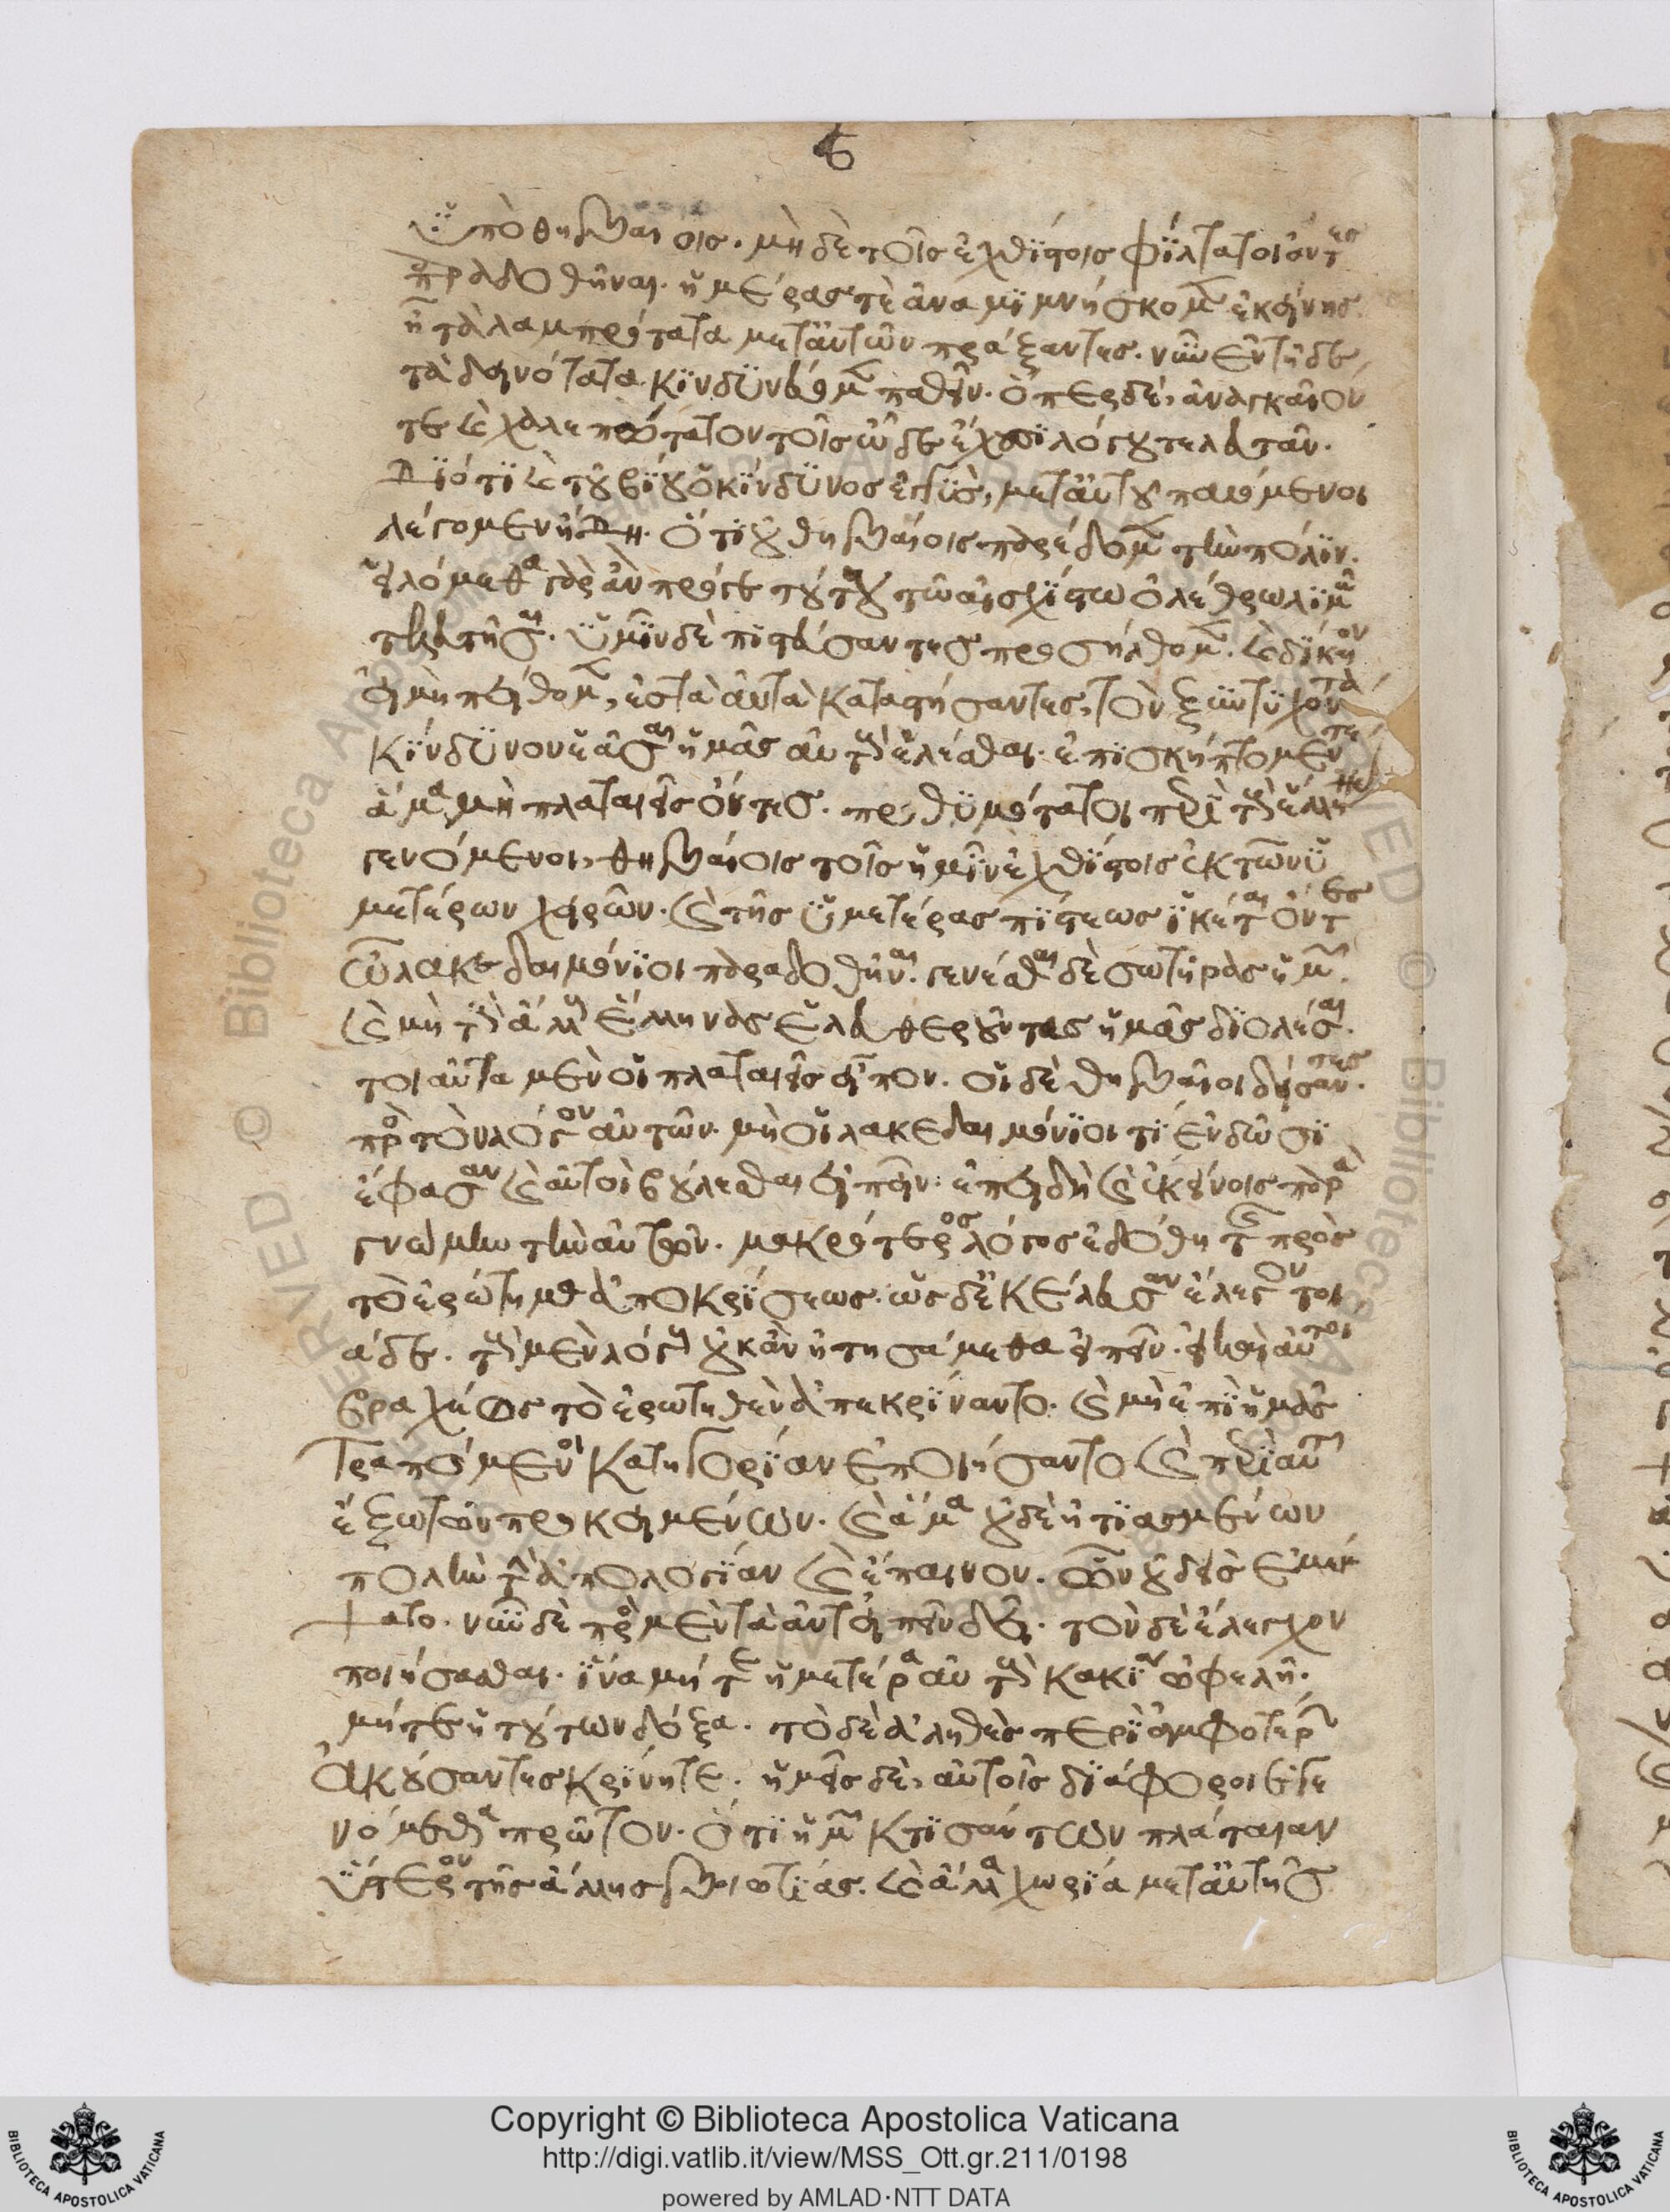 ϛ
ὑπὸ θηβαίοις. μὴ δὲ τοῖς ἐχθίστοις φίλτατοι ὄντες
παραδοθῆναι. ἡμέρας τὲ ἀναμιμνήσκομεν ἐκείνης
ἧ τὰ λαμπρότατα μετ' αὐτῶν πράξαντες. νῦν ἐν τῇδε
τὰ δεινότατα κινδυνεύομεν παθεῖν. ὅπερ δὲ, ἀναγκαῖον
τε καὶ χαλεπώτατον τοῖς ὧδε ἔχουσι λόγου τελευτᾶν.
διότι καὶ τοῦ βίου ὁ κίνδυνος ἐγγὺς, μετ' αὐτοῦ παυόμενοι
λέγομεν ἤδη. ὅτι οὐ θηβαίοις παρέδομεν τὴν πόλιν.
εἱλόμεθα γὰρ ἂν πρό γε τούτου τῶ αἰσχίστω ὀλέθρω λιμῶ
τελευτῆσαι. ὑμῖν δὲ πιστεύσαντες προσήλθομεν. καὶ δίκαιον
εἰ μὴ πείθομεν, ἐς τὰ αὐτὰ καταστήσαντες, τὸν ξυντυχόντα
κίνδυνον ἐᾶσαι ἡμᾶς αὐτοὺς ἑλέσθαι. ἐπισκήπτομέν τε
ἅμα μὴ πλαταιεῖς ὄντες. προθυμότατοι περὶ τοὺς ἕλληνας
γενόμενοι, θηβαίοις τοῖς ἡμῖν ἐχθίστοις ἐκ τῶν ὑ
μετέρων χειρῶν. καὶ τῆς ὑμετέρας πίστεως ἱκέται ὄντες
ὦ λακεδαιμόνιοι παραδοθῆναι. γενέσθαι δὲ σωτῆρας ἡμῶν.
καὶ μὴ τοὺς ἄλλους ἕλληνας ἐλευθεροῦντας ἡμᾶς διολέσαι.
τοιαῦτα μὲν οἱ πλαταιεῖς εἶπον. οἱ δὲ θηβαῖοι δείσαντες.
πρὸς τὸν λόγον αὐτῶν. μὴ οἱ λακεδαιμόνιοι τι ἐνδῶσι
ἔφασαν καὶ αὐτοὶ βούλεσθαι εἰπεῖν. ἐπειδὴ καὶ ἐκείνοις παρὰ
γνώμην τὴν αὐτῶν. μακρότερος λόγος ἐδόθη τῆς πρὸς
τὸ ἐρώτημα ἀποκρίσεως. ὡς δ' ἐκέλευσαν ἔλεγον τοι
άδε. τοὺς μὲν λόγους οὐκ ἂν ἠτησάμεθα εἰπεῖν. εἰ καὶ αὐτοὶ
βραχέως τὸ ἐρωτηθὲν ἀπεκρίναντο. καὶ μὴ ἐπὶ ἡμᾶς
τραπόμενοι κατηγορίαν ἐποιήσαντο. καὶ περὶ αὐτῶν
ἔξω τῶν προκειμένων. καὶ ἅμα οὐδὲ ἠτιασμένων
πολλὴν τὴν ἀπολογίαν καὶ ἔπαινον. ὧν οὐδεὶς ἐμέμ
ψατο. νῦν δὲ πρὸς μὲν τὰ ἀντειπεῖν δεῖ. τοῦ δὲ ἔλεγχον
ποιήσασθαι. ἵνα μήτε ἡ ἡμετέρα αὐτοὺς κακία ὠφελῇ.
μήτε ἡ τούτων δόξα. τὸ δὲ ἀληθὲς περὶ ἀμφοτέρων
ἀκούσαντες κρίνητε. ἡμεῖς δὲ, αὐτοῖς διάφοροι ἐγε
νόμεθα πρῶτον. ὅτι ἡμῶν κτισάντων πλάταιαν
ὕστερον τῆς ἄλλης βοιωτίας. καὶ ἄλλα χωρία μετ' αὐτῆς
Copyright © Biblioteca Apostolica Vaticana
http://digi.vatlib.it/view/MSS_Ott.gr.211/0198
powered by AMLAD·NTT DATA